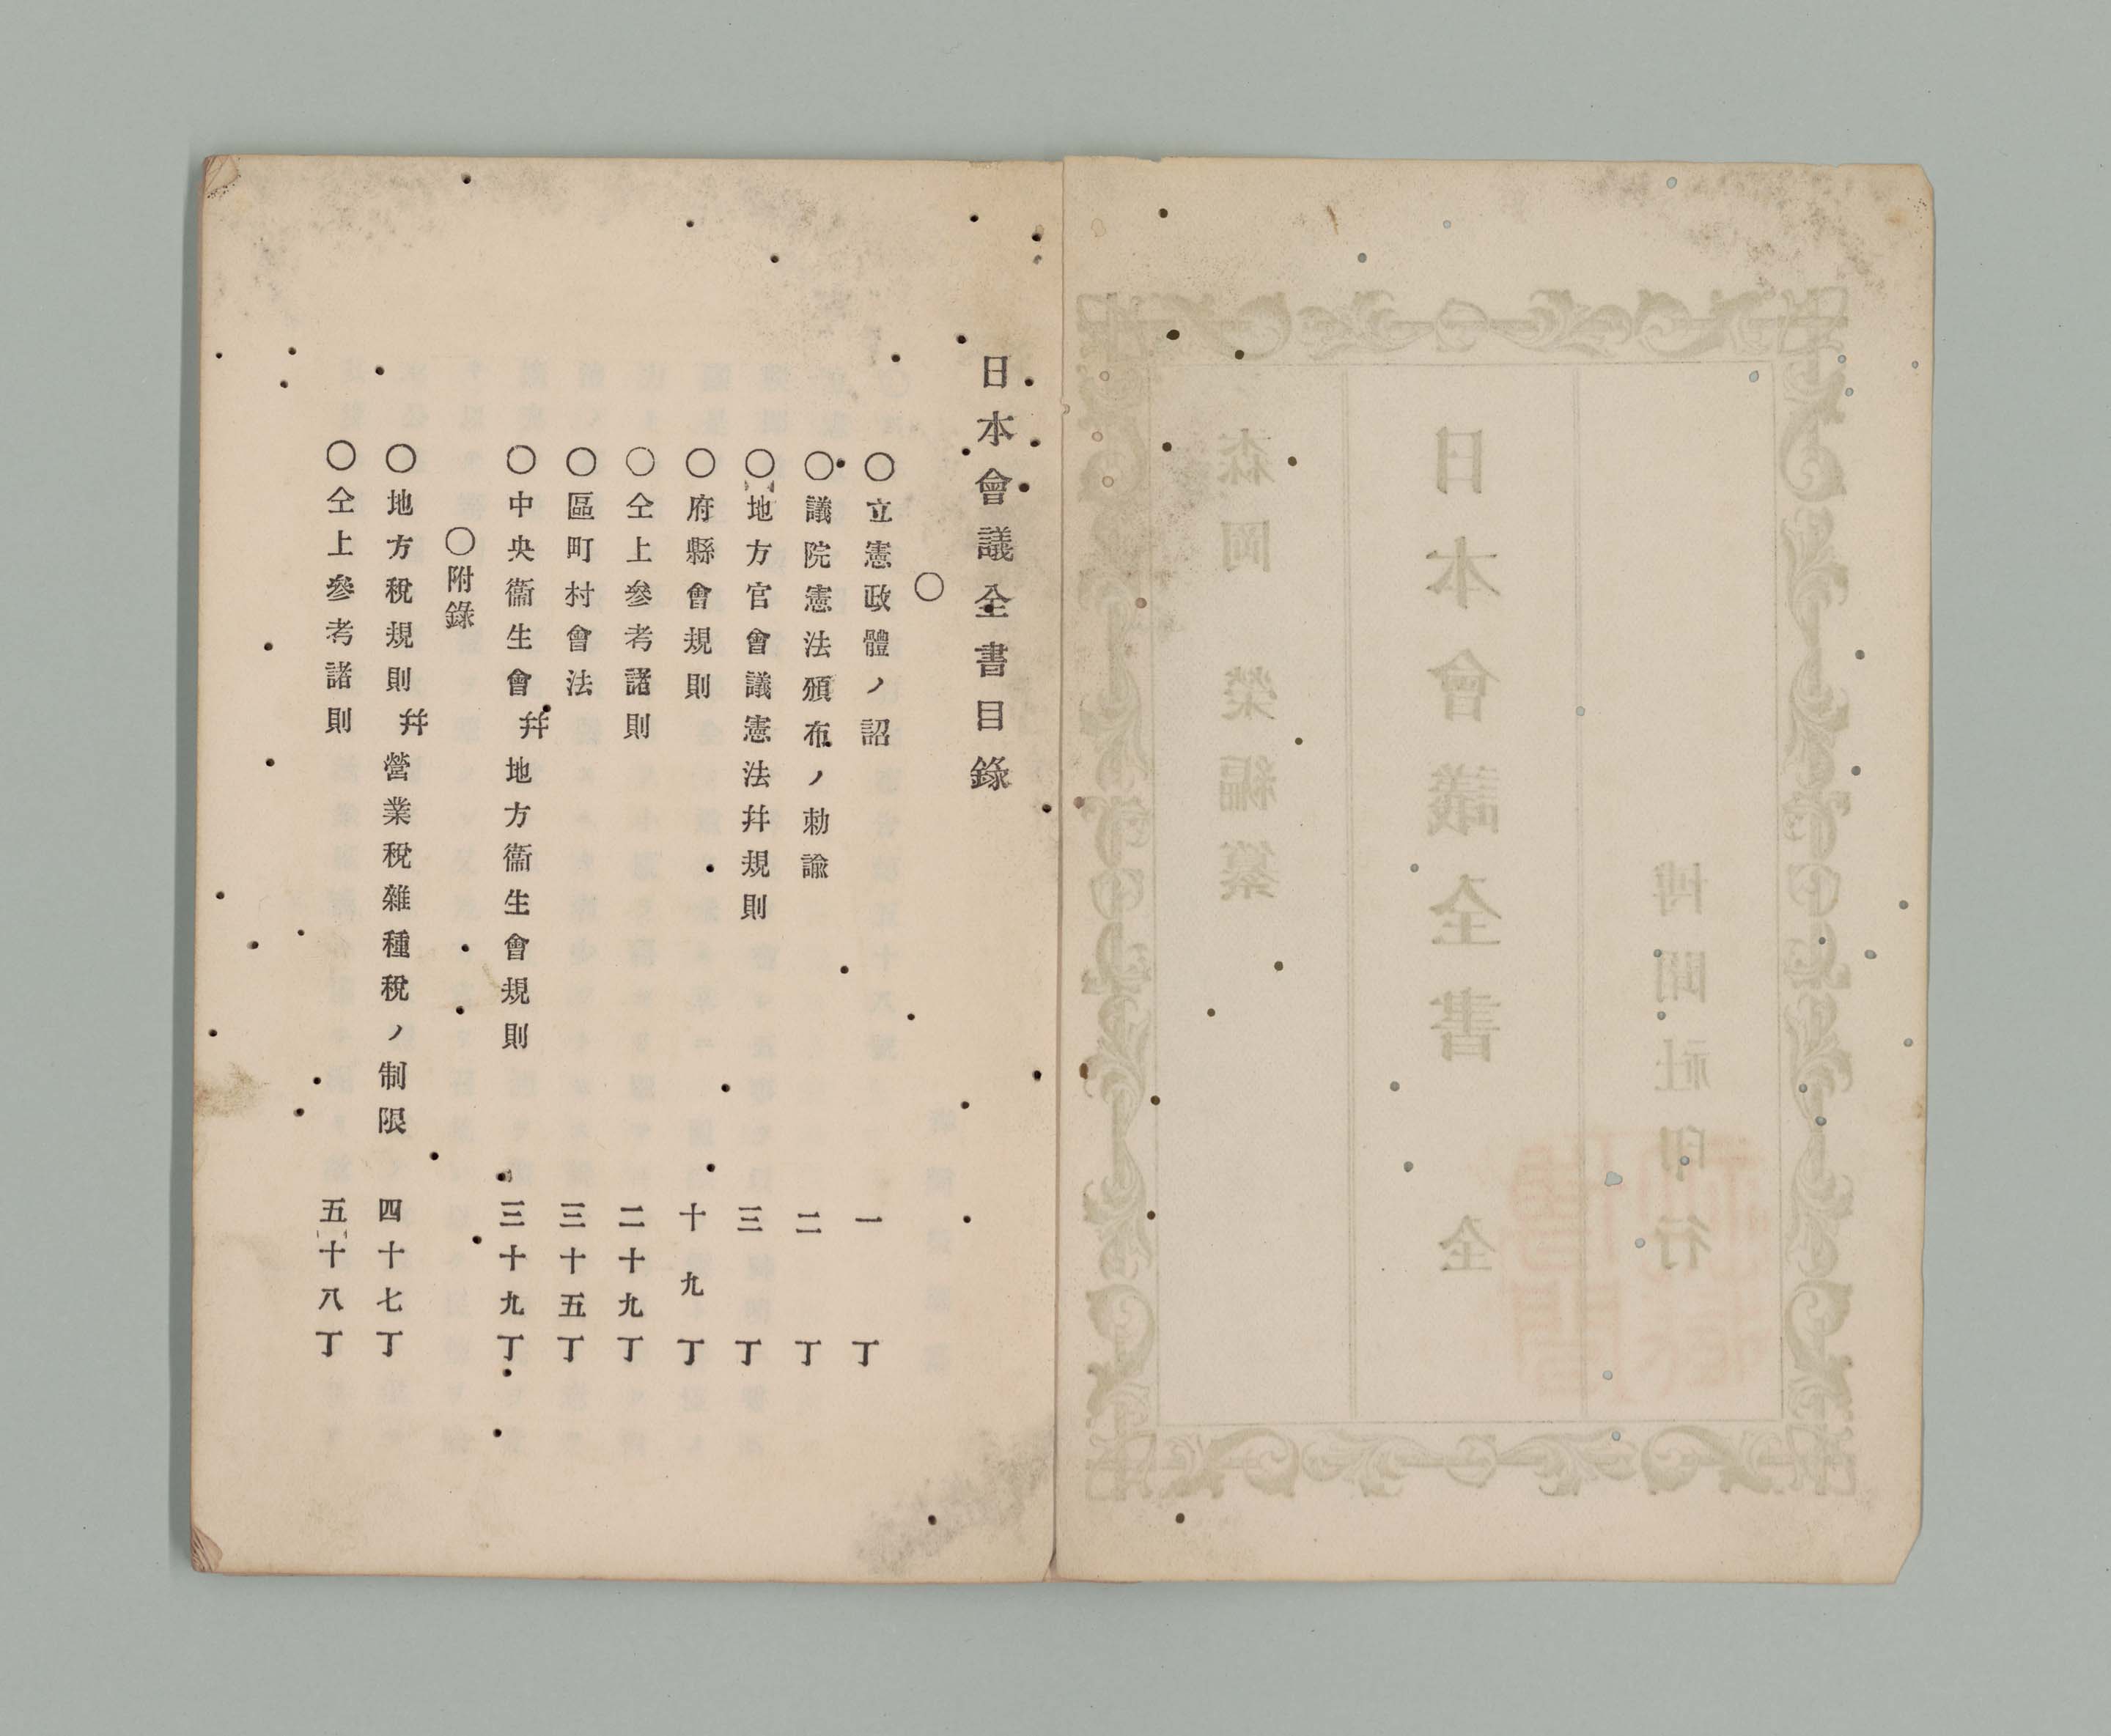 博聞社印行
日本會議全書 全
森岡榮編纂
日本會議全書目錄
〇
〇立憲政體ノ詔 一丁
〇議院憲法頒布ノ勅諭 二丁
〇地方官會議憲法幷規則 三丁
〇府縣會規則 十九丁
〇仝上參考諸則 二十九丁
〇區町村會法 三十五丁
〇中央衞生會幷地方衞生會規則 三十九丁
〇附錄
〇地方稅規則幷營業稅雜種稅ノ制限 四十七丁
〇仝上參考諸則 五十八丁